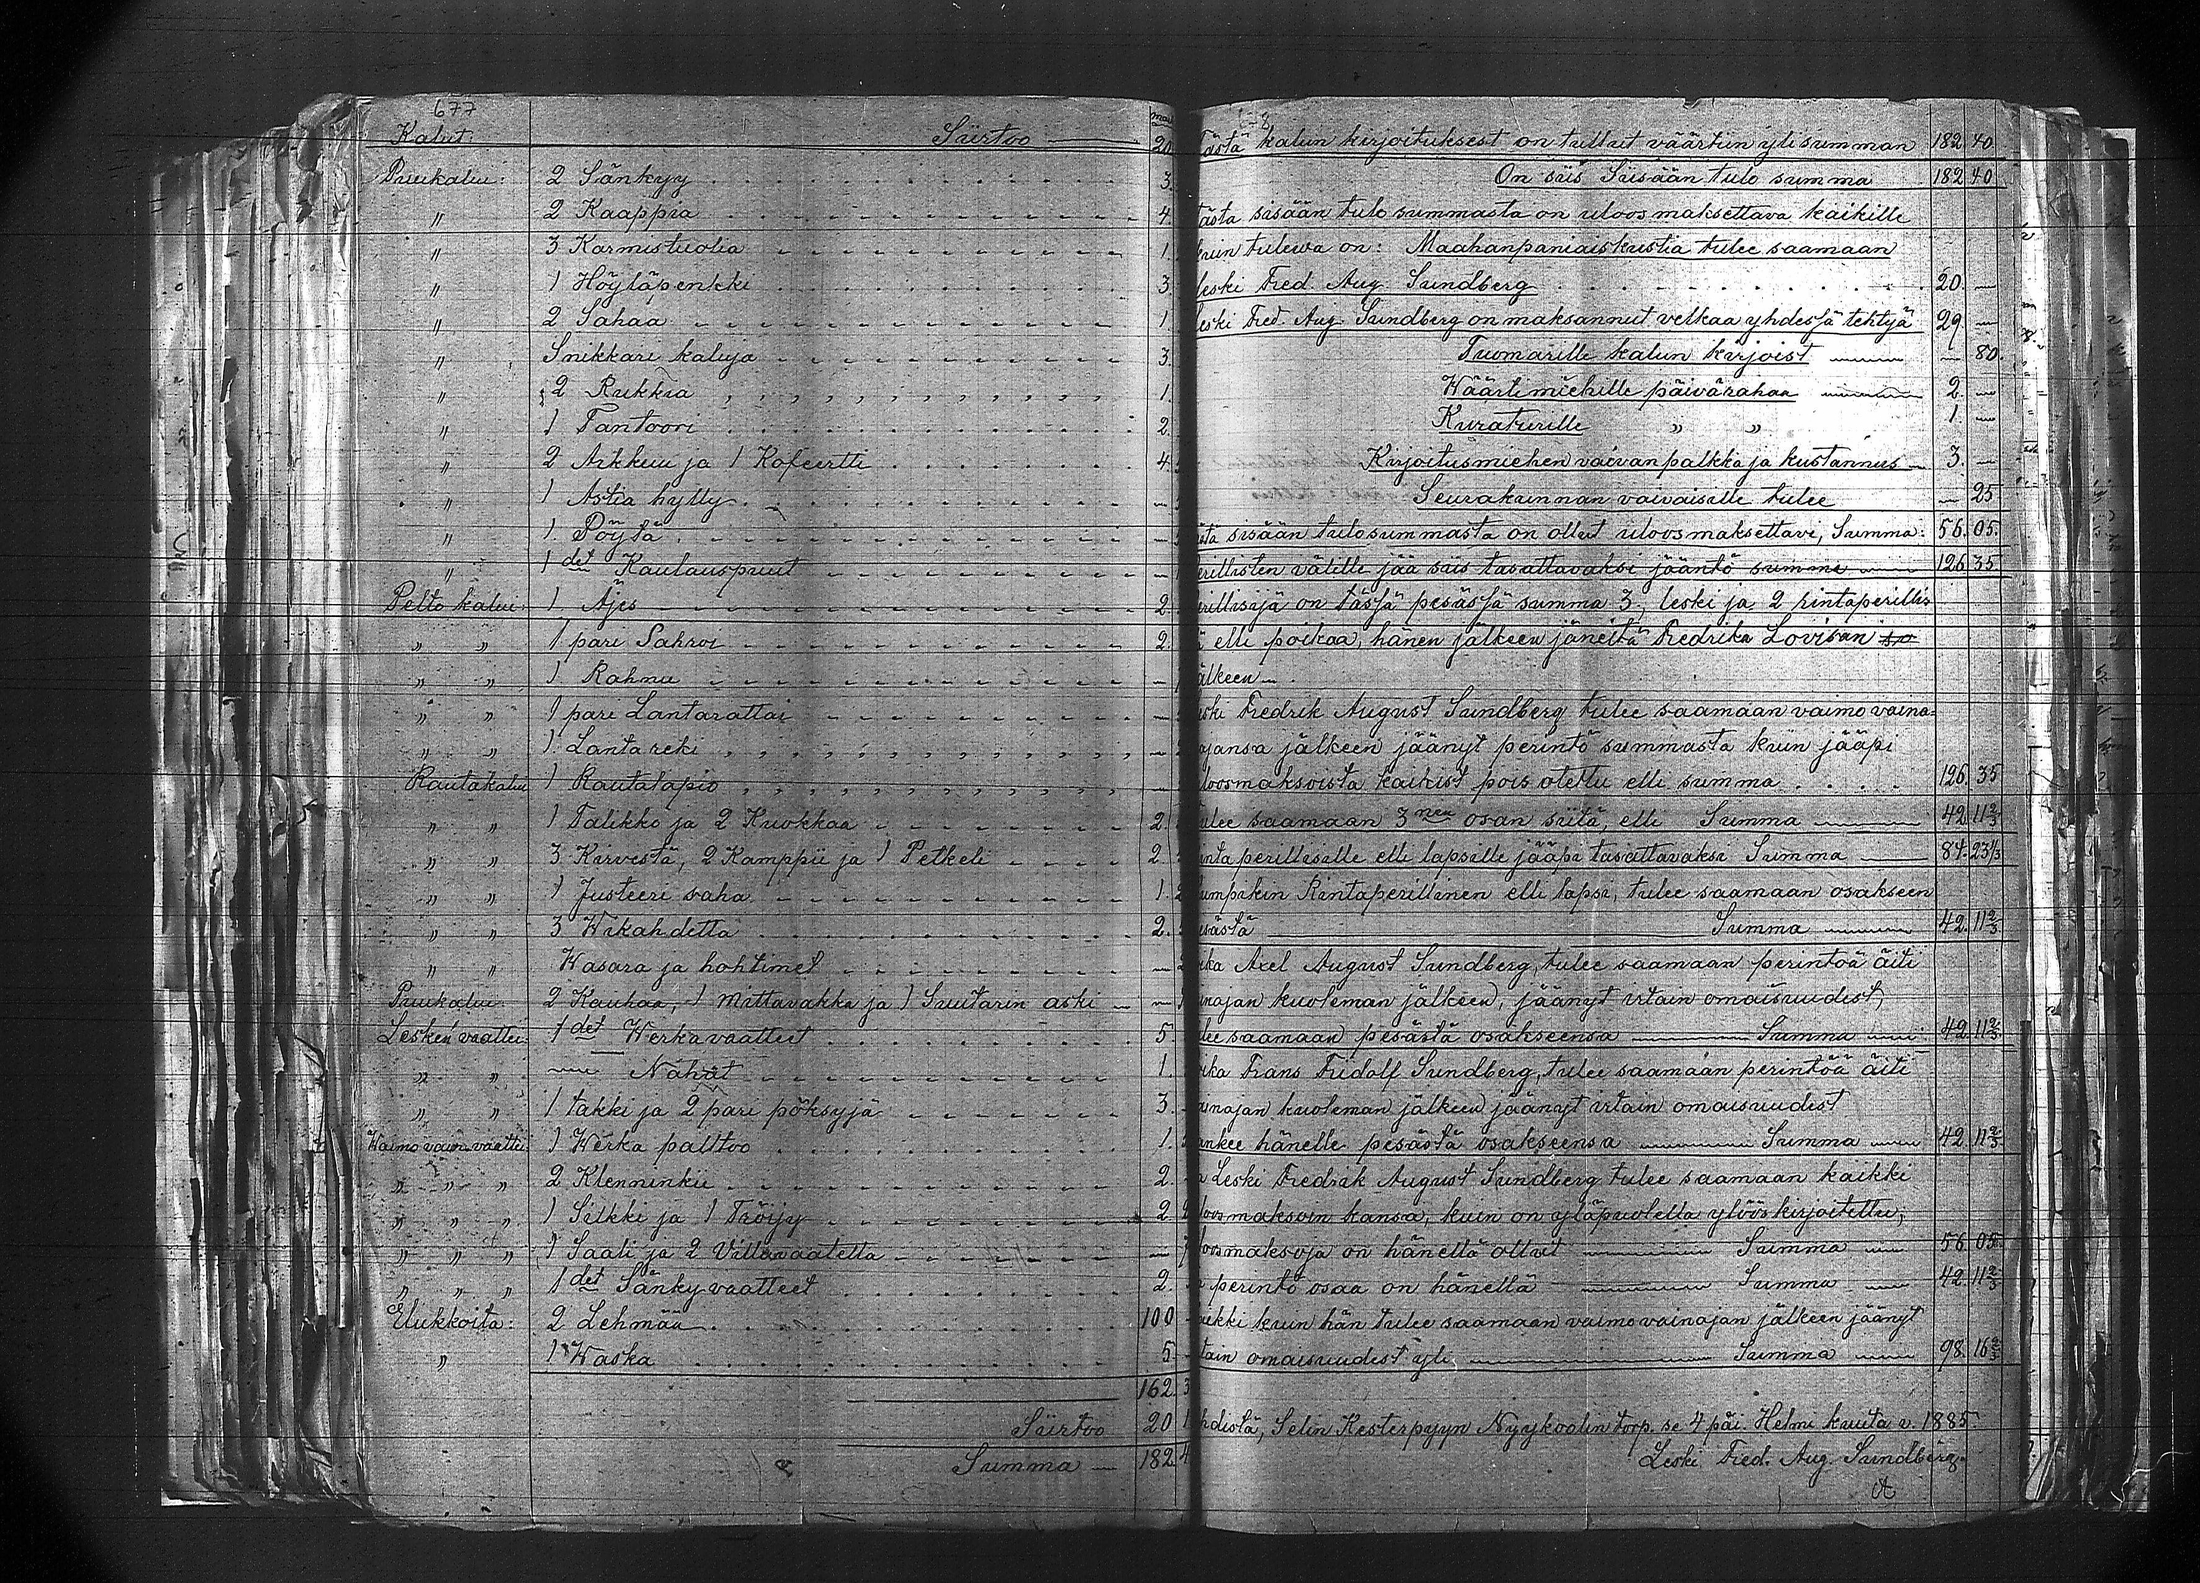 677
Kalut. Siirtoo 20
Puukalu: 2 Sänkyy 3.
" 2 Kaappia 4.
" 3 Karmistuolia 1.
" 1 Höyläpenkki 3.
" 2 Sahaa 1.
" Snikkari kaluja 3.
" 2 Rukkia 1.
" 1 Tantoori 2.
" 2 Arkkuu ja 1 Kofeertti 4.
" 1 Astia hylly
" 1. Pöytä
" 1 det Kaulauspuut
Pelto kalui: 1. Äjes 2.
" " 1 pari Sahroi 2.
" " 1 Rahnu
" " 1 pari Lantarattai
" " 1. Lantareki
Rautakalui 1 Rautalapio
" " 1 Talikko ja 2 Kuokkaa 2.
" " 3 Kirvestä, 2 Kamppii ja 1 Petkeli 2.
" " 1 Justeeri saha 1.
" " 3 Wikahdetta 2.
" " Wasara ja hohtimet
Puukalui 2 Kauhaa, 1 mittavakka ja 1 Suutarin aski
Lesken vaattei 1 det Werkavaatteet 5
" " Nahat 1.
" " 1 takki ja 2 pari pöksyjä 3.
Waimo vain. vaattei 1 Werka palttoo 1.
" " " 2 Klenninkii 2.
" " " 1 Silkki ja 1 Tröijy 2
" " " 1 Saali ja 2 Villavaatetta
" " " 1 det Sänky vaatteet 2.
Elukkoita: 2 Lehmää 100
" 1 Waska 5
162.
Siirtoo 20
Summa 182
Tästä kalun kirjoituksest on tullut väärtiin ylisumman 182 40.
On siis Siisään tulo summa 182 40
tästa sisään tulo summasta on uloos maksettava kaikille
kuin tulewa on: Maahanpaniaiskustia tulee saamaan
leski Fred. Aug. Sundberg 20.
leski Fred. Aug. Sundberg on maksannut velkaa yhdessä tehtyä 29
Tuomarille kalun kirjoist 80.
Wäärtimiehille päivärahaa 2.
Kuraturille " " 1.
Kirjoitusmiehen vaivanpalkka ja kustannus 3.
Seurakunnan vaivaisille tulee 25
ästä sisään tulosummasta on ollut uloosmaksettavi, Summa: 56. 05.
erillisten välille jää siis tasattavaksi jääntö summi 126 35
erillisijä on tässä pesässä summa 3, leski ja 2 rintaperillis
ä elli poikaa, hänen jälkeen jäneitä Fredrika Lovisan
älkeen
eski Fredrik August Sundberg tulee saamaan vaimo vaina=
ajansa jälkeen jäänyt perintö summasta kuin jääpi
loosmaksoista kaikist pois otettu elli summa 126. 35
tulee saamaan 3 nen osan siitä, elli Summa 42 11 2/3
inta perillisille elli lapsille jääpi tasattavaksi Summa 84. 23 1/3
umpikin Rintaperillinen elli lapsi, tulee saamaan osakseen
esästä Summa 42. 11 2/3
ika Axel August Sundberg, tulee saamaan perintöä äiti
inajan kuoleman jälkeen, jäänyt irtain omaisuudest,
lee saamaan pesästä osakseensa Summa 42 11 2/3
ika Frans Fridolf Sundberg, tulee saamaan perintöä äiti
inajan kuoleman jälkeen jäänyt irtain omaisuudest
ankee hänelle pesästä osakseensa Summa 42 11 2/3
a Leski Fredrik August Sundberg tulee saamaan kaikki
loosmaksoin kansa, kuin on yläpuolella ylööskirjoitettu,
loosmaksoja on hänellä ollut Summa 56. 05
a perintö osaa on hänellä Summa 42. 11 2/3
aikki kuin hän tulee saamaan vaimo vainajan jälkeen jäänyt
tain omaisuudest yli Summa 98. 16 2/3
hdistä, Selin Kesterpyyn Nyykoolin torp. se 4 päi. Helmi kuuta v. 1885
Leski Fred. Aug. Sundberg.